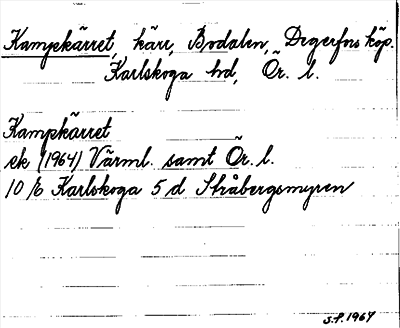 Kampkärret, kärr, Bodalen, Degerfors köp.
Karlskoga hd, Ör. l.
Kampkärret
ek (1964) Värml. samt Ör. l.
10 E Karlskoga 5 d Stråbergsmyren
S.F. 1967